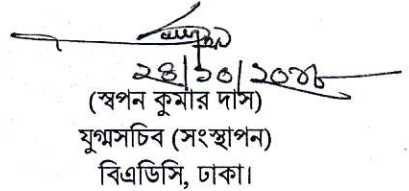 ২৪/১০/২০১৮
(স্বপন কুমার দাস)
যুগ্মসচিব (সংস্থাপন)
বিএডিসি, ঢাকা।